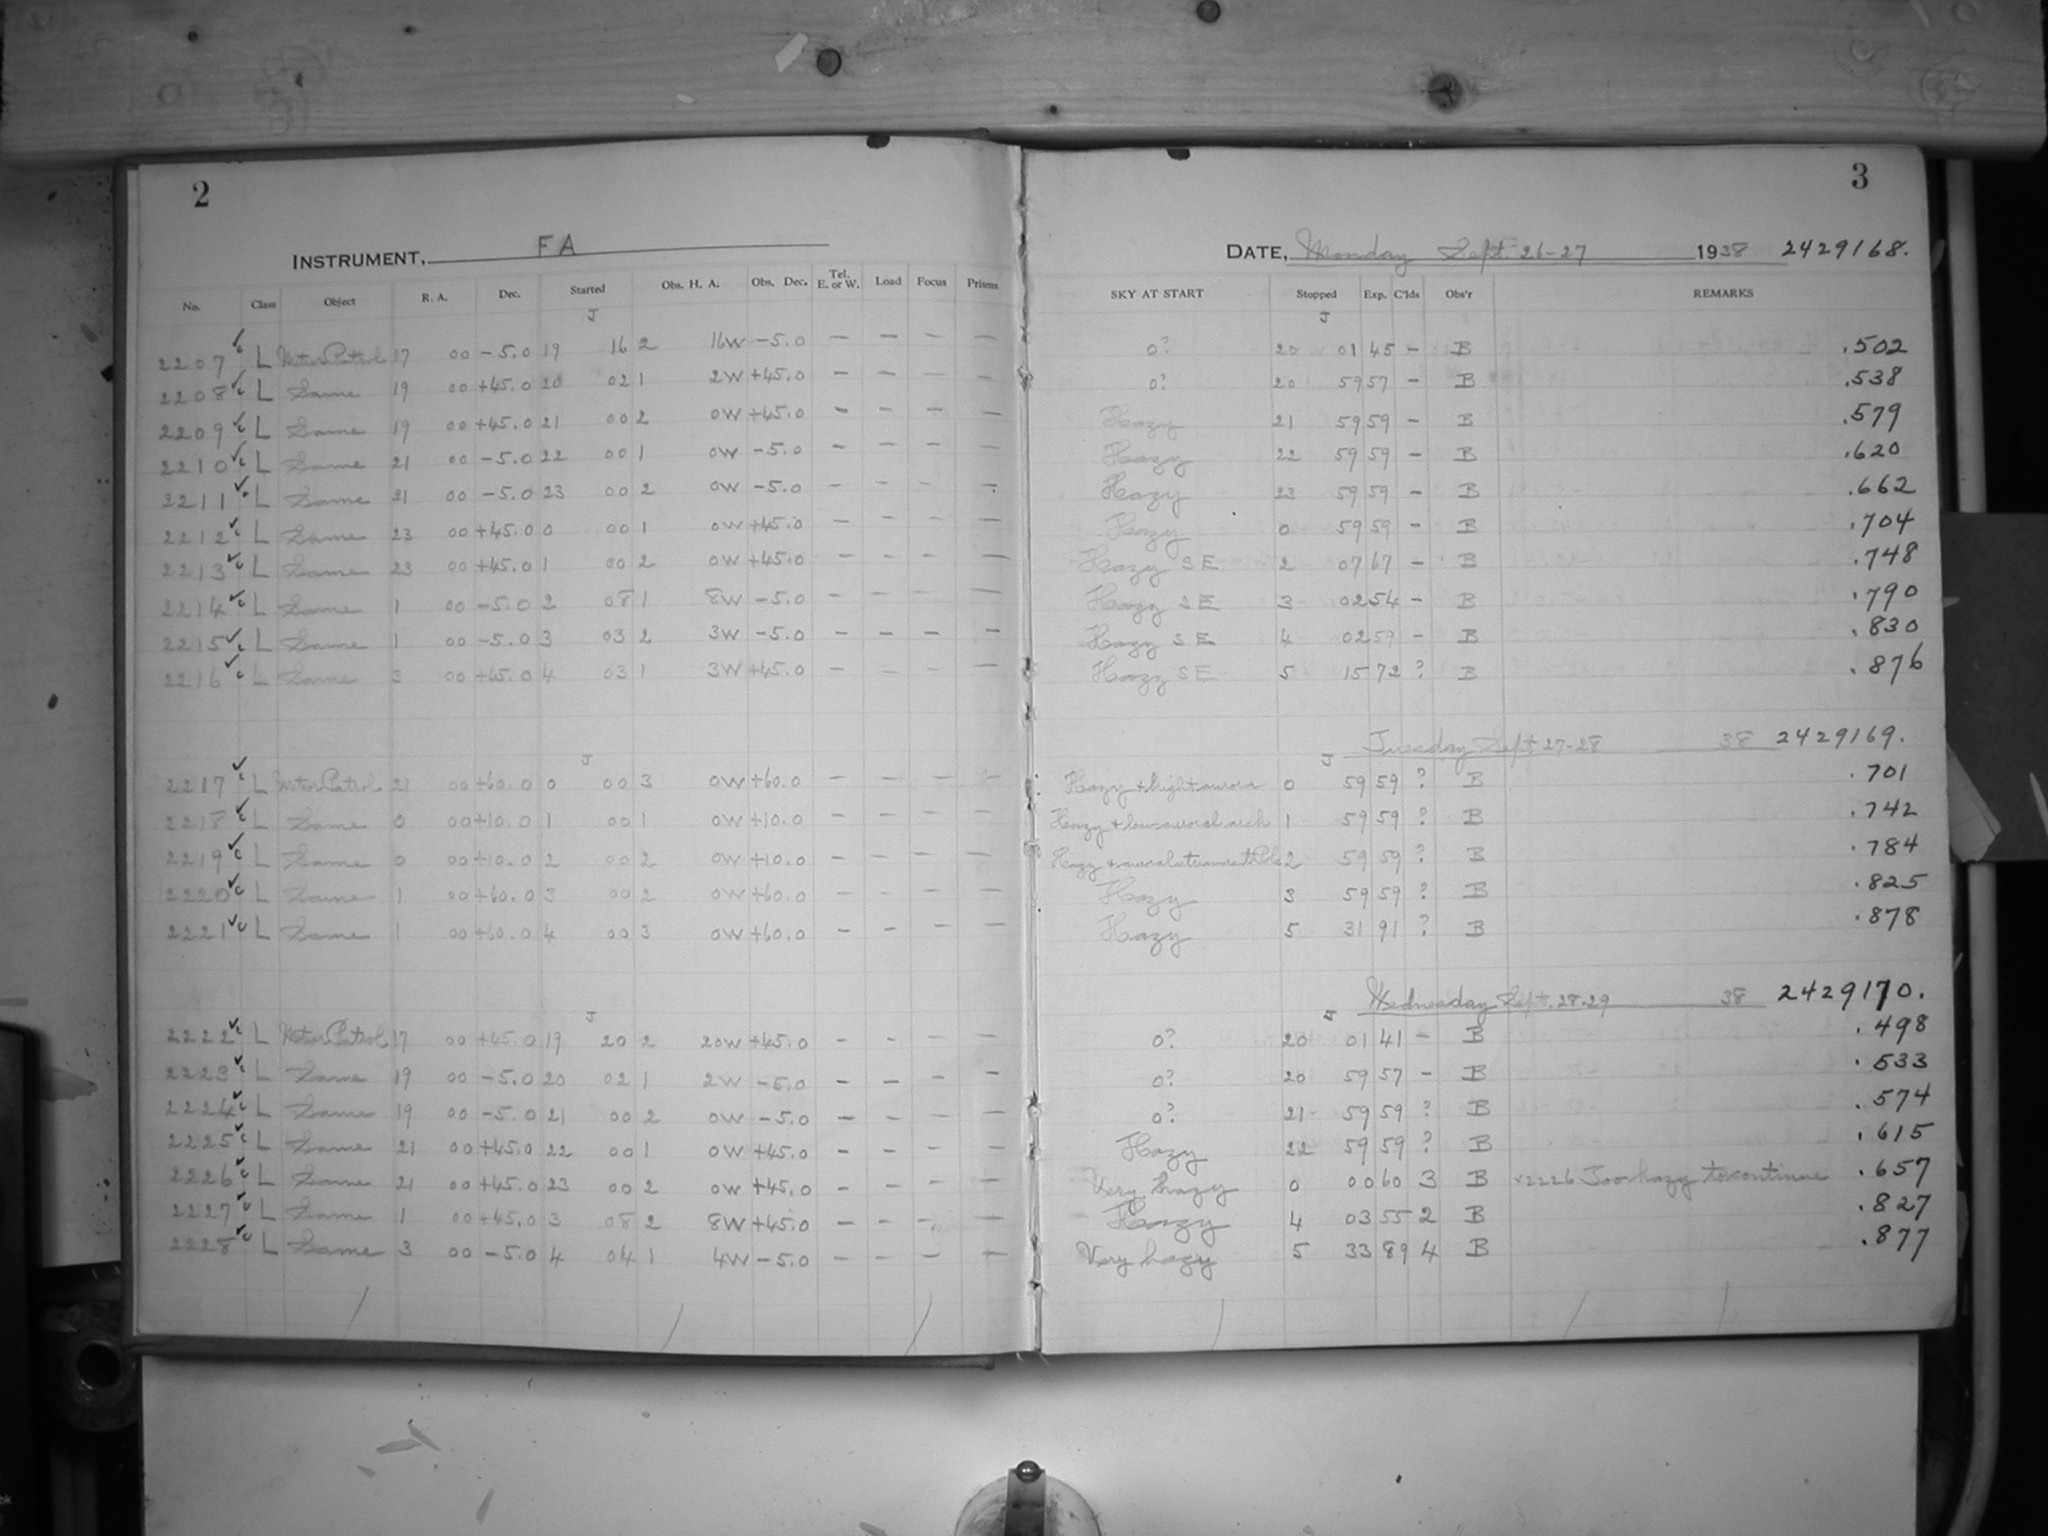 2
INSTRUMENT, FA
No. Class Object R. A. Dec. Started Obs. H. A. Obs. Dec. Tel. E. or W. Load Focus Prisms
J
2207 L Meteor Patrol 17 00 -5.0 19 16 2 16W -5.0 - - - -
2208 L Same 19 00 +45.0 20 02 1 2W +45.0 - - - -
2209 L Same 19 00 +45.0 21 00 2 0W +45.0 - - - -
2210 L Same 21 00 -5.0 22 00 1 0W -5.0 - - - -
2211 L Same 21 00 -5.0 23 00 2 0W -5.0 - - - -
2212 L Same 23 00 +45.0 0 00 1 0W +45.0 - - - -
2213 L Same 23 00 +45.0 1 00 2 0W +45.0 - - - -
2214 L Same 1 00 -5.0 2 08 1 8W -5.0 - - - -
2215 L Same 1 00 -5.0 3 03 2 3W -5.0 - - - -
2216 L Same 3 00 +45.0 4 03 1 3W +45.0 - - - -
J
2217 L Meteor Patrol 21 00 +60.0 0 00 3 0W +60.0 - - - -
2218 L Same 0 00 +10.0 1 00 1 0W +10.0 - - - -
2219 L Same 0 00 +10.0 2 00 2 0W +10.0 - - - -
2220 L Same 1 00 +60.0 3 00 2 0W +60.0 - - - -
2221 L Same 1 00 +60.0 4 00 3 0W +60.0 - - - -
J
2222 L Meteor Patrol 17 00 +45.0 19 20 2 20W +45.0 - - - -
2223 L Same 19 00 -5.0 20 02 1 2W -5.0 - - - -
2224 L Same 19 00 -5.0 21 00 2 0W -5.0 - - - -
2225 L Same 21 00 +45.0 22 00 1 0W +45.0 - - - -
2226 L Same 21 00 +45.0 23 00 2 0W +45.0 - - - -
2227 L Same 1 00 +45.0 3 08 2 8W +45.0 - - - -
2228 L Same 3 00 -5.0 4 04 1 4W -5.0 - - - -
3
DATE, Monday Sept. 26-27 1938 2429168.
SKY AT START Stopped Exp. C'lds Obs'r REMARKS
J
0? 20 01 45 - B .502
0? 20 59 57 - B .538
Hazy 21 59 59 - B .579
Hazy 22 59 59 - B .620
Hazy 23 59 59 - B .662
Hazy 0 59 59 - B .704
Hazy SE 2 07 67 - B .748
Hazy SE 3 02 54 - B .790
Hazy SE 4 02 59 - B .830
Hazy SE 5 15 72 ? B .876
Tuesday Sept 27-28 38 2429169.
J
Hazy + bright aurora 0 59 59 ? B .701
Hazy + low auroral arch 1 59 59 ? B .742
Hazy + auroral 2 59 59 ? B .784
Hazy 3 59 59 ? B .825
Hazy 5 31 91 ? B .878
Wednesday Sept. 28-29 38 2429170.
J
0? 20 01 41 - B .498
0? 20 59 57 - B .533
0? 21 59 59 ? B .574
Hazy 22 59 59 ? B .615
Very hazy 0 00 60 3 B x2226 Too hazy to continue .657
Hazy 4 03 55 2 B .827
Very hazy 5 33 89 4 B .877